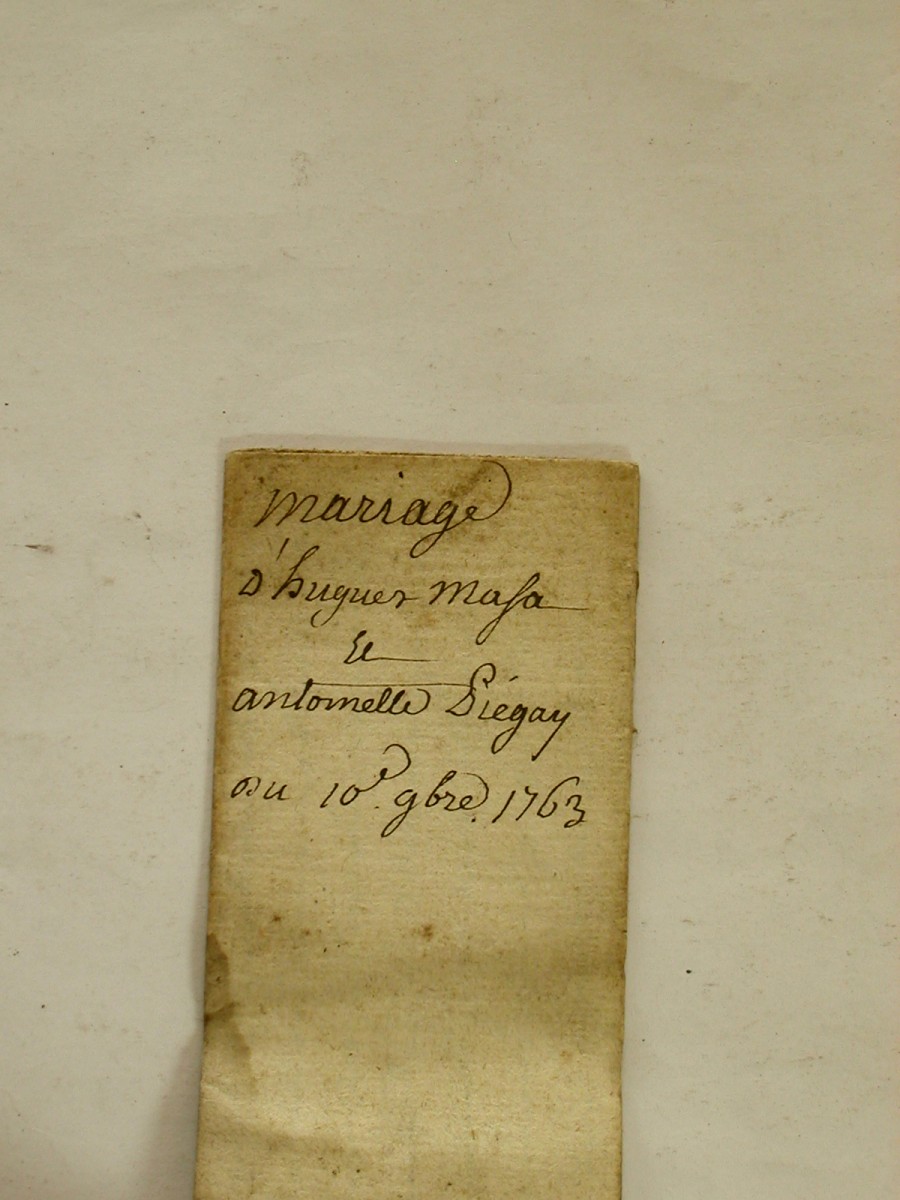 mariage
D'hugues Masſa
Et
antoinette Piégay
Du 10e. 9bre. 1763